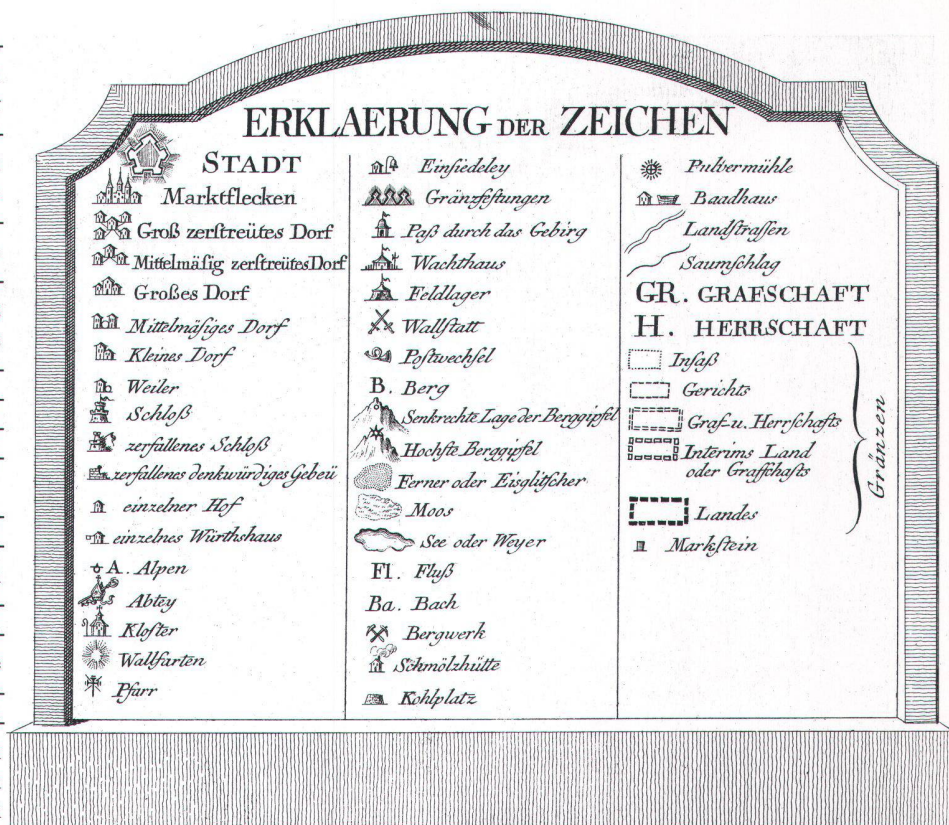 ERKLAERUNG DER ZEICHEN
STADT
Marktflecken
Groß zerstreütes Dorf
Mittelmäsig zerstreütes Dorf
Großes Dorf
Mittelmäsiges Dorf
Kleines Dorf
Weiler
Schloß
zerfallenes Schloß
zerfallenes denkwürdiges Gebeü
einzelner Hof
einzelnes Würthshaus
A. Alpen
Abtey
Kloster
Wallfarten
Pfarr
Einsiedeley
Gränzfestungen
Paß durch das Gebirg
Wachthaus
Feldlager
Wallstatt
Postwechsel
B. Berg
Senkrechte Lage der Berggipfel
Hochste Berggipfel
Ferner oder Eisglitscher
Moos
See oder Weyer
Fl. Fluß
Ba. Bach
Bergwerk
Schmölzhütte
Kohlplatz
Pulvermühle
Baadhaus
Landstrassen
Saumschlag
GR. GRAFSCHAFT
H. HERRSCHAFT
Insaß
Gerichts
Graf- u. Herrschafts
Interims Land
oder Graffchafts
Landes
Gränzen
Markstein